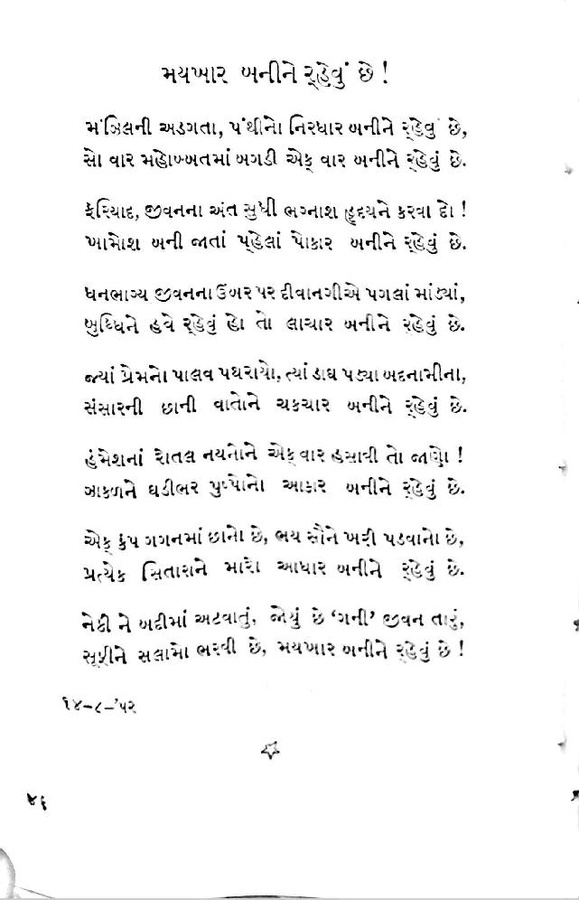 મયખાર બનીને ર્‌હેવું છે !
મંઝિલની અડગતા, પંથીનો નિરધાર બનીને ર્‌હેવું છે,
સો વાર મહોબ્બતમાં બગડી એક વાર બનીને ર્‌હેવું છે.
ફરિયાદ, જીવનના અંત સુધી ભગ્નાશ હૃદયને કરવા દો !
ખામોશ બની જાતાં પ્‌હેલાં પોકાર બનીને ર્‌હેવું છે.
ધનભાગ્ય જીવનના ઉંબર પર દીવાનગીએ પગલાં માંડ્યાં,
બુધ્ધિને હવે ર્‌હેવું હો તો લાચાર બનીને રહેવું છે.
જ્યાં પ્રેમનો પાલવ પથરાયો, ત્યાં ડાઘ પડ્યા બદનામીના,
સંસારની છાની વાતોને ચકચાર બનીને ર્‌હેવું છે.
હંમેશનાં રોતલ નયનોને એક વાર હસાવી તો જાણો !
ઝાકળને ઘડીભર પુષ્પોનો આકાર બનીને ર્‌હેવું છે.
એક કંપ ગગનમાં છાનો છે, ભય સૌને ખરી પડવાનો છે,
પ્રત્યેક સિતારાને મારો આધાર બનીને ર્‌હેવું છે.
નેકી ને બદીમાં અટવાતું, જોયું છે ‘ગની’ જીવન તારું,
સૃષ્ટીને સલામો ભરવી છે, મયખાર બનીને ર્‌હેવું છે !
૧૪-૮-’૫૨
૪૬